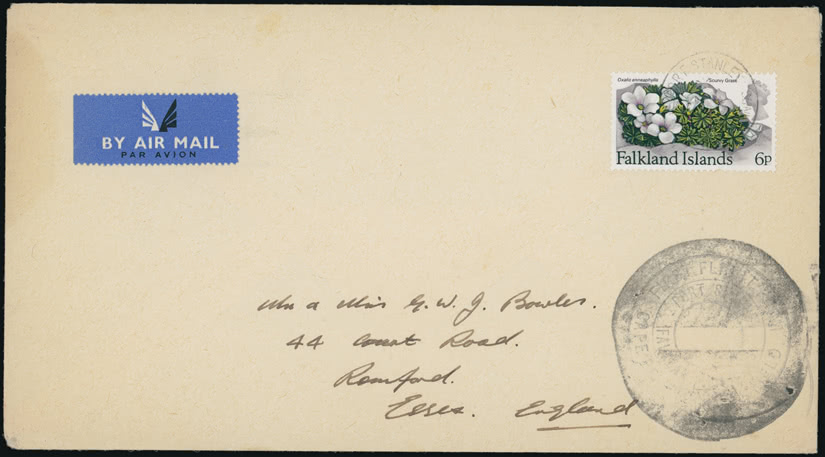 BY AIR MAIL
PAR AVION
Oxalis enneaphylla Scurvy Grass
PORT STANLEY
Falkland Islands 6p
Mr & Mrs G. W. J. Bowles.
44 Court Road.
Romford.
Essex. England